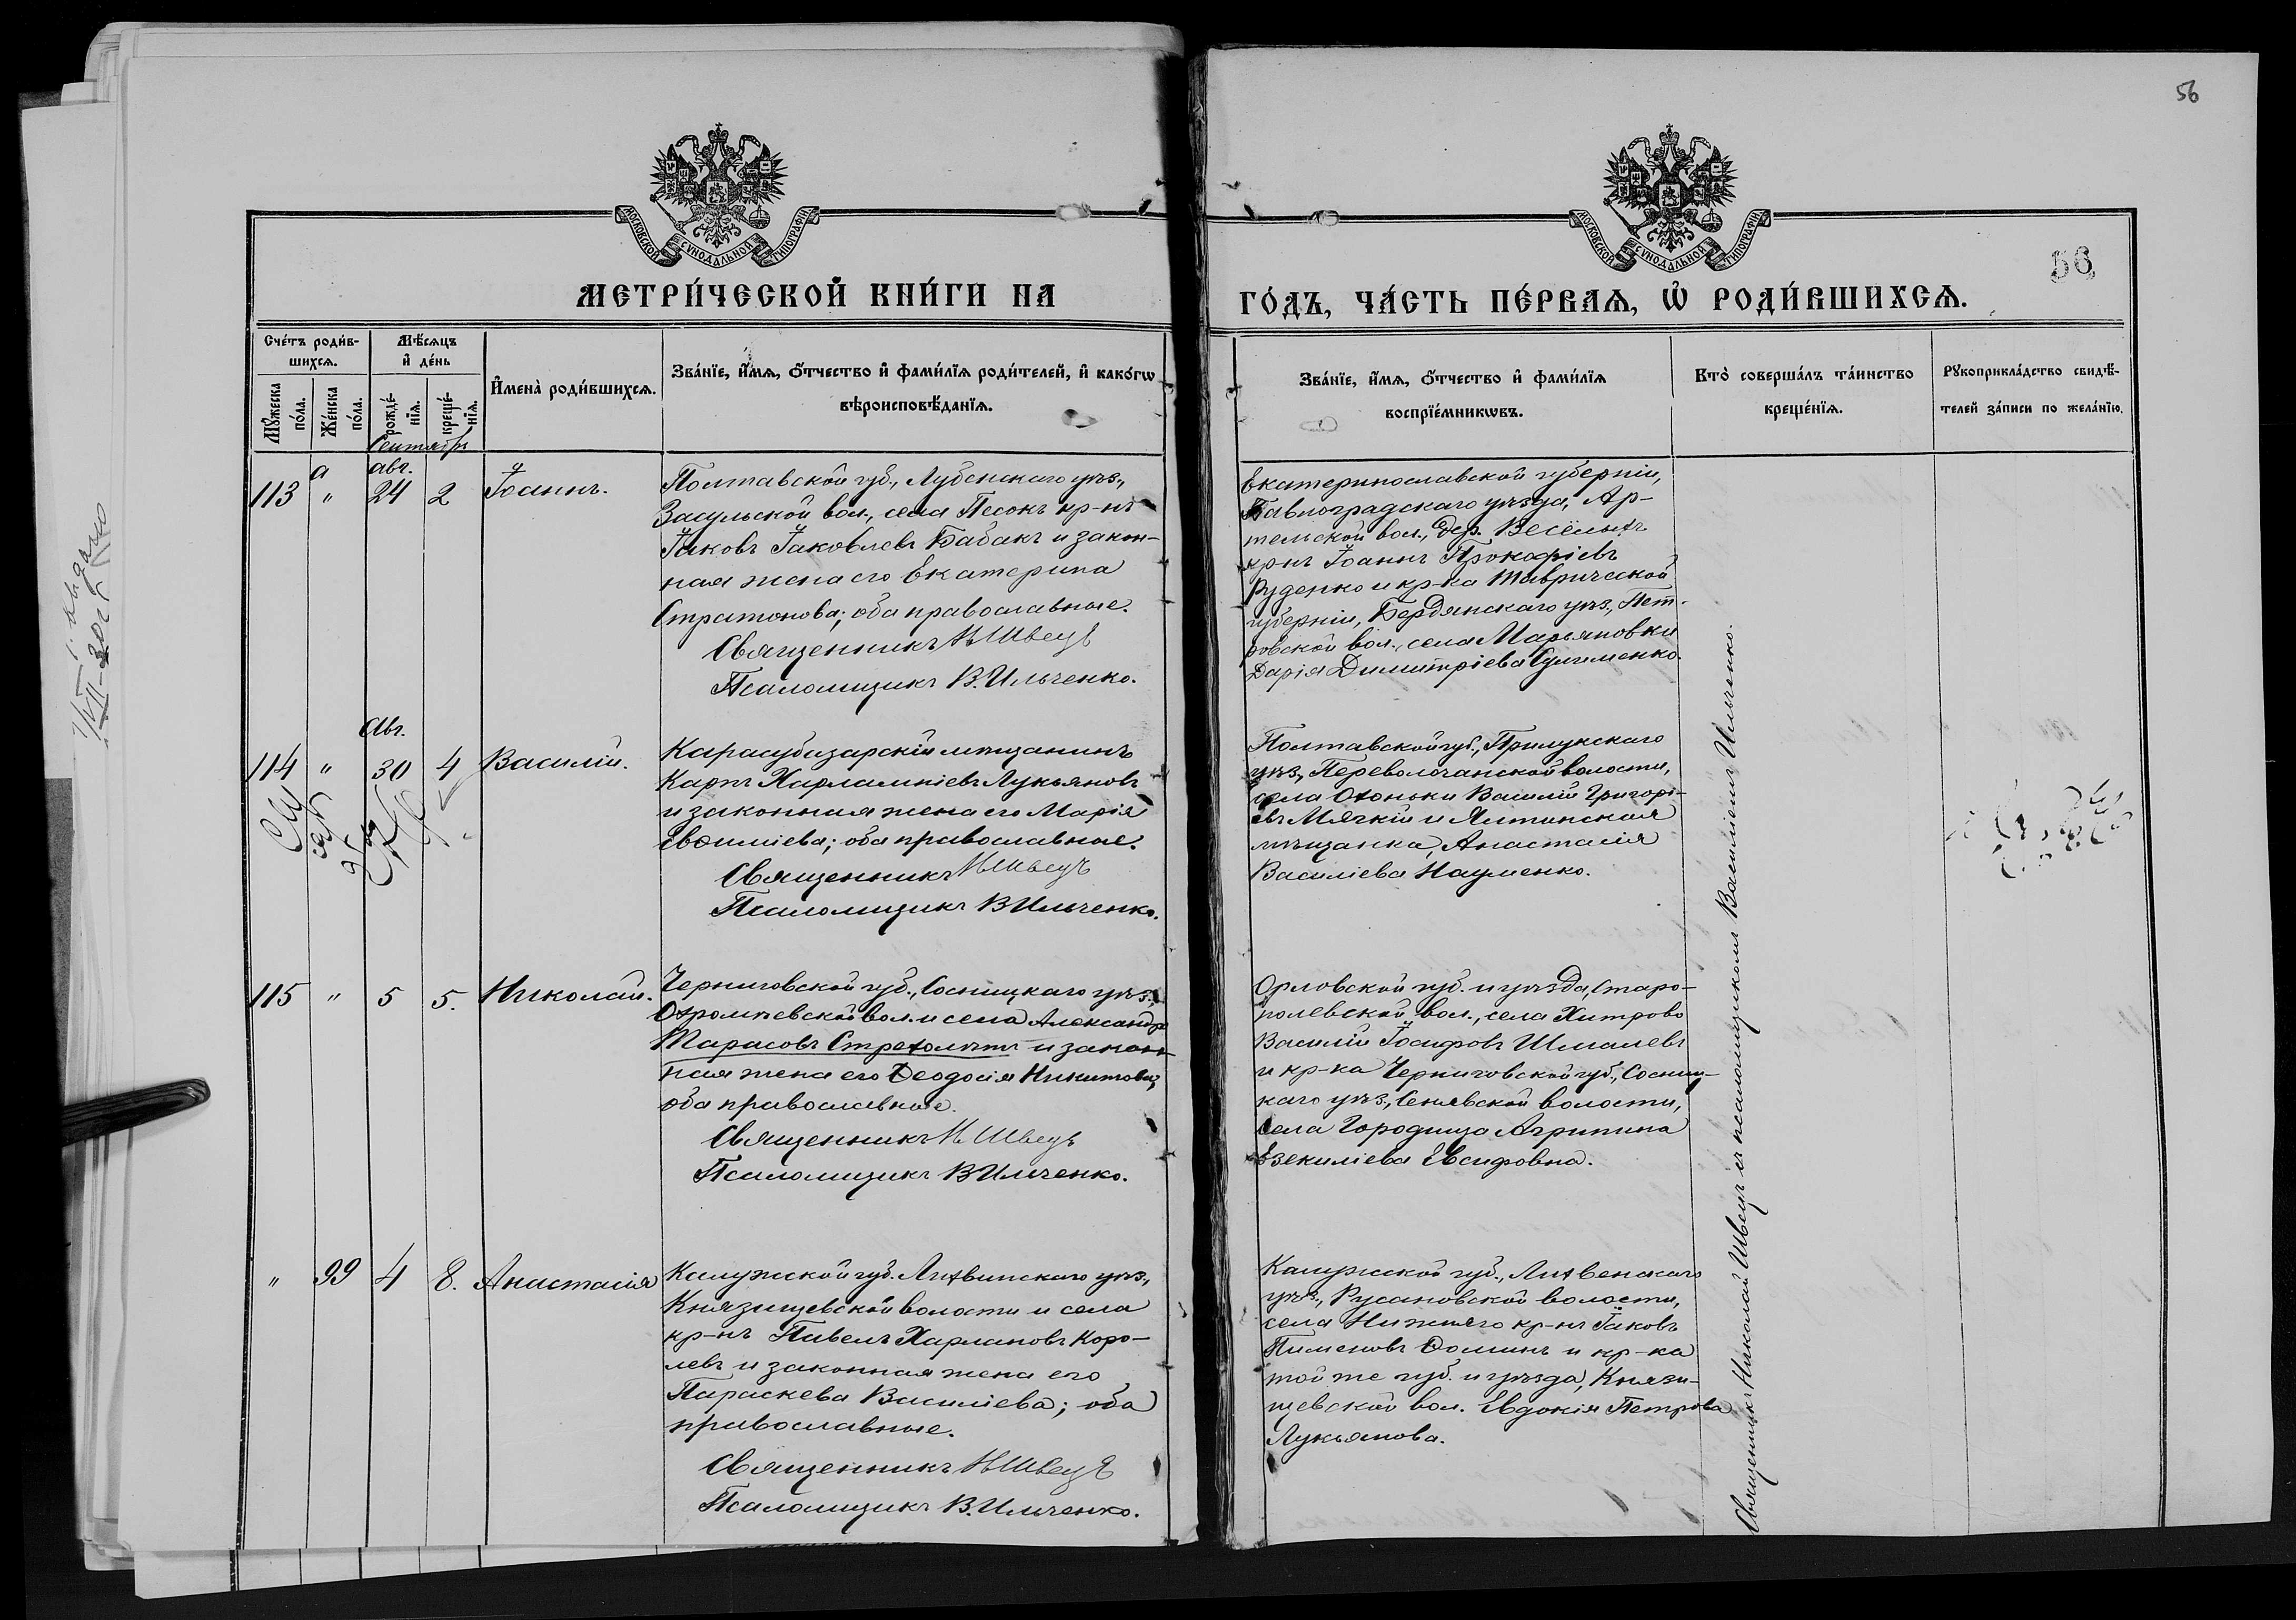 56
МОСКОВСКОЙ СѴНОДАЛЬНОЙ ТИПОГРАФІИ
МОСКОВСКОЙ СѴНОДАЛЬНОЙ ТИПОГРАФІИ
56
МЕТРИ́ЧЕСКОЙ КНИ́ГИ НА
ГО́ДЪ, ЧА́СТЬ ПЕ́РВАЯ, Ѡ҆ РОДИ́ВШИХСЯ.
Сче́тъ роди́в-
шихся.
Мѣ́сяцъ
и҆ де́нь
Мꙋ́жеска по́ла.
Же́нска по́ла.
рожде́-
нїя.
креще́-
нїя.
И҆мена̀ роди́вшихся.
Зва́нїе, и҆́мя, ѻ҆́тчество и҆ фами́лїя роди́телей, и҆ како́гѡ
вѣроисповѣ́данїя.
Зва́нїе, и҆́мя, ѻ҆́тчество и҆ фами́лїя
воспрїе́мникѡвъ.
Кто̀ соверша́лъ та́инство
креще́нїя.
Рꙋкоприкла́дство свидѣ́-
телей за́писи по жела́нїю.
Сентябрь
а авг.
113 " 24 2 Іоаннъ.
Полтавской губ., Лубенскаго уѣз.,
Засульской вол., села Песокъ кр-нъ
Іаковъ Іаковлевъ Бабакъ и закон-
ная жена его Екатерина
Стратонова; оба православные.
Священникъ Н Швецъ
Псаломщикъ В. Ильченко.
Екатеринославской губерніи,
Павлоградскаго уѣзда, Ар-
тельской вол., дер. Весёлыхъ
кр-нъ Іоаннъ Прокофіевъ
Руденко и кр-ка Таврической
губерніи, Бердянскаго уѣз., Пет-
ровской вол., села Марьяновки
Дарія Димитріева Сулименко.
Авг.
114 " 30 4 Василій.
Карасубазарскій мѣщанинъ
Карпъ Харлампіевъ Лукьяновъ
и законная жена его Марія
Евѳиміева; оба православные.
Священникъ Н Швецъ
Псаломщикъ В Ильченко.
Полтавской губ., Прилукскаго
уѣз., Переволочанской волости,
села Охоньки Василій Григорі-
евъ Мягкій и Ялтинская
мѣщанка, Анастасія
Василіева Науменко.
115 " 5 5. Николай.
Черниговской губ., Сосницкаго уѣз.,
Охромѣевской вол. и села Александръ
Тарасовъ Стрехолетъ и закон-
ная жена его Ѳеодосія Никитова;
оба православные.
Священникъ Н Швецъ
Псаломщикъ В Ильченко.
Орловской губ. и уѣзда, Старо-
полевской вол., села Хитрово
Василій Іосифовъ Шмалевъ
и кр-ка Черниговской губ., Сосниц-
каго уѣз., волости,
села Городища Агрипина
Езекиліева Евсифовна.
" 99 4 8. Анастасія
Калужской губ. Лихвинскаго уѣз.,
Князищевской волости и села
кр-нъ Павелъ Харлановъ Коро-
левъ и законная жена его
Параскева Василіева; оба
православные.
Священникъ Н Швецъ
Псаломщикъ В. Ильченко.
Калужской губ., Лихвенскаго
уѣз., Русановской волости,
села Нижняго кр-нъ Іаковъ
Пименовъ Ѳоминъ и кр-ка
той же губ. и уѣзда, Князи-
щевской вол. Евдокія Петрова
Лукьянова.
Священникъ Николай Швецъ и псаломщикомъ Василіемъ Ильченко.